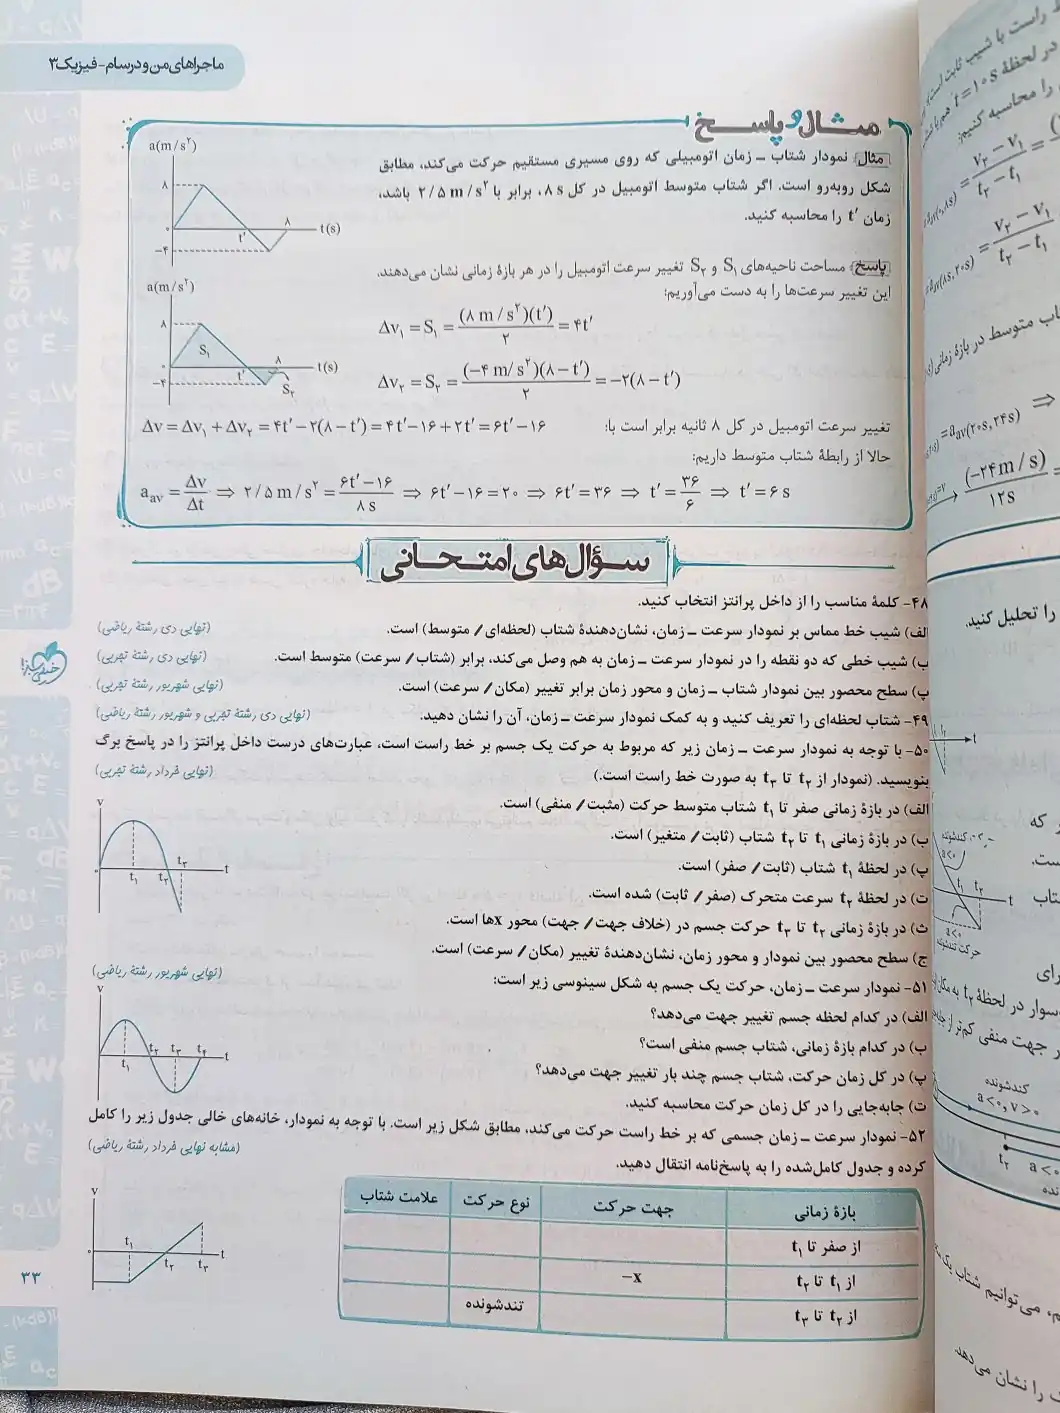 ماجراهای من و درسام - فیزیک ۳
مثال و پاسخ
مثال: نمودار شتاب ـ زمان اتومبیلی که روی مسیری مستقیم حرکت می‌کند، مطابق
شکل روبه‌رو است. اگر شتاب متوسط اتومبیل در کل ۸ s، برابر با ۲/۵ m/s² باشد،
زمان t′ را محاسبه کنید.
a(m/s²)
۸
۰
t′
۸
t(s)
−۴
پاسخ: مساحت ناحیه‌های S₁ و S₂ تغییر سرعت اتومبیل را در هر بازهٔ زمانی نشان می‌دهند.
این تغییر سرعت‌ها را به دست می‌آوریم:
a(m/s²)
۸
S₁
۰
t′
۸
t(s)
−۴
S₂
Δv₁ = S₁ = (۸ m/s²)(t′) / ۲ = ۴t′
Δv₂ = S₂ = (−۴ m/s²)(۸ − t′) / ۲ = −۲(۸ − t′)
تغییر سرعت اتومبیل در کل ۸ ثانیه برابر است با: Δv = Δv₁ + Δv₂ = ۴t′ − ۲(۸ − t′) = ۴t′ − ۱۶ + ۲t′ = ۶t′ − ۱۶
حالا از رابطهٔ شتاب متوسط داریم:
a_av = Δv / Δt ⇒ ۲/۵ m/s² = (۶t′ − ۱۶) / ۸ s ⇒ ۶t′ − ۱۶ = ۲۰ ⇒ ۶t′ = ۳۶ ⇒ t′ = ۳۶ / ۶ ⇒ t′ = ۶ s
سؤال‌های امتحانی
۴۸- کلمهٔ مناسب را از داخل پرانتز انتخاب کنید.
الف) شیب خط مماس بر نمودار سرعت ـ زمان، نشان‌دهندهٔ شتاب (لحظه‌ای / متوسط) است. (نهایی دی رشتهٔ ریاضی)
ب) شیب خطی که دو نقطه را در نمودار سرعت ـ زمان به هم وصل می‌کند، برابر (شتاب / سرعت) متوسط است. (نهایی دی رشتهٔ تجربی)
پ) سطح محصور بین نمودار شتاب ـ زمان و محور زمان برابر تغییر (مکان / سرعت) است. (نهایی شهریور رشتهٔ تجربی)
۴۹- شتاب لحظه‌ای را تعریف کنید و به کمک نمودار سرعت ـ زمان، آن را نشان دهید. (نهایی دی رشتهٔ تجربی و شهریور رشتهٔ ریاضی)
۵۰- با توجه به نمودار سرعت ـ زمان زیر که مربوط به حرکت یک جسم بر خط راست است، عبارت‌های درست داخل پرانتز را در پاسخ برگ
بنویسید. (نمودار از t₂ تا t₃ به صورت خط راست است.) (نهایی خرداد رشتهٔ تجربی)
الف) در بازهٔ زمانی صفر تا t₁ شتاب متوسط حرکت (مثبت / منفی) است.
ب) در بازهٔ زمانی t₁ تا t₂ شتاب (ثابت / متغیر) است.
پ) در لحظهٔ t₁ شتاب (ثابت / صفر) است.
ت) در لحظهٔ t₂ سرعت متحرک (صفر / ثابت) شده است.
ث) در بازهٔ زمانی t₂ تا t₃ حرکت جسم در (خلاف جهت / جهت) محور xها است.
ج) سطح محصور بین نمودار و محور زمان، نشان‌دهندهٔ تغییر (مکان / سرعت) است.
v
۰
t₁
t₂
t₃
t
۵۱- نمودار سرعت ـ زمان، حرکت یک جسم به شکل سینوسی زیر است: (نهایی شهریور رشتهٔ ریاضی)
الف) در کدام لحظه جسم تغییر جهت می‌دهد؟
ب) در کدام بازهٔ زمانی، شتاب جسم منفی است؟
پ) در کل زمان حرکت، شتاب جسم چند بار تغییر جهت می‌دهد؟
ت) جابه‌جایی را در کل زمان حرکت محاسبه کنید.
v
۰
t₁
t₂
t₃
t₄
t
۵۲- نمودار سرعت ـ زمان جسمی که بر خط راست حرکت می‌کند، مطابق شکل زیر است. با توجه به نمودار، خانه‌های خالی جدول زیر را کامل
کرده و جدول کامل‌شده را به پاسخ‌نامه انتقال دهید. (مشابه نهایی خرداد رشتهٔ ریاضی)
v
۰
t₁
t₂
t₃
t
بازهٔ زمانی جهت حرکت نوع حرکت علامت شتاب
از صفر تا t₁
از t₁ تا t₂ −x
از t₂ تا t₃ تندشونده
۳۳
خیلی سبز